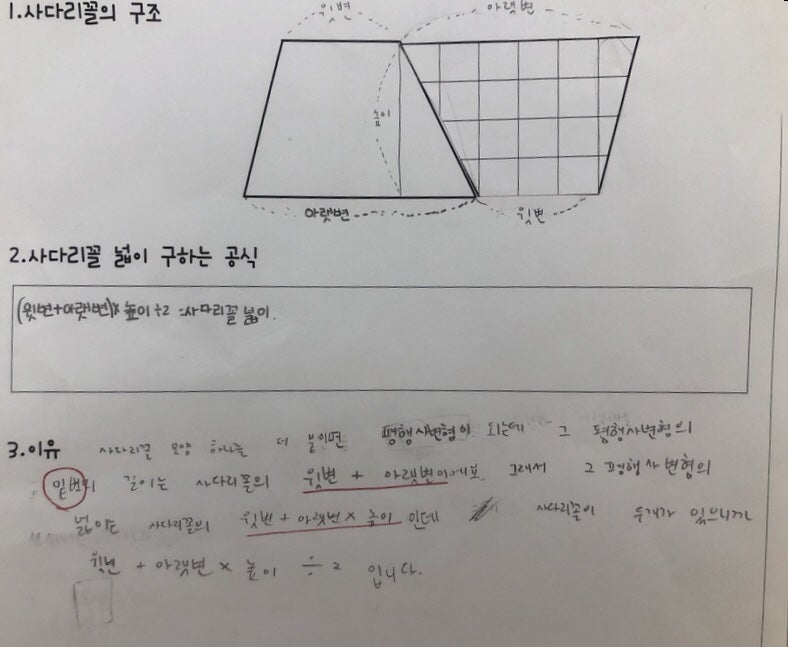 1.사다리꼴의 구조
윗변
아랫변
높이
아랫변
윗변
2.사다리꼴 넓이 구하는 공식
(윗변+아랫변)×높이÷2=사다리꼴 넓이.
3.이유 사다리꼴 모양 하나를 더 붙이면 평행사변형이 되는데 그 평행사변형의
밑변의 길이는 사다리꼴의 윗변 + 아랫변이에요. 그래서 그 평행사변형의
넓이는 사다리꼴의 윗변 + 아랫변 × 높이 인데 사다리꼴이 두개가 있으니까
윗변 + 아랫변 × 높이 ÷ 2 입니다.